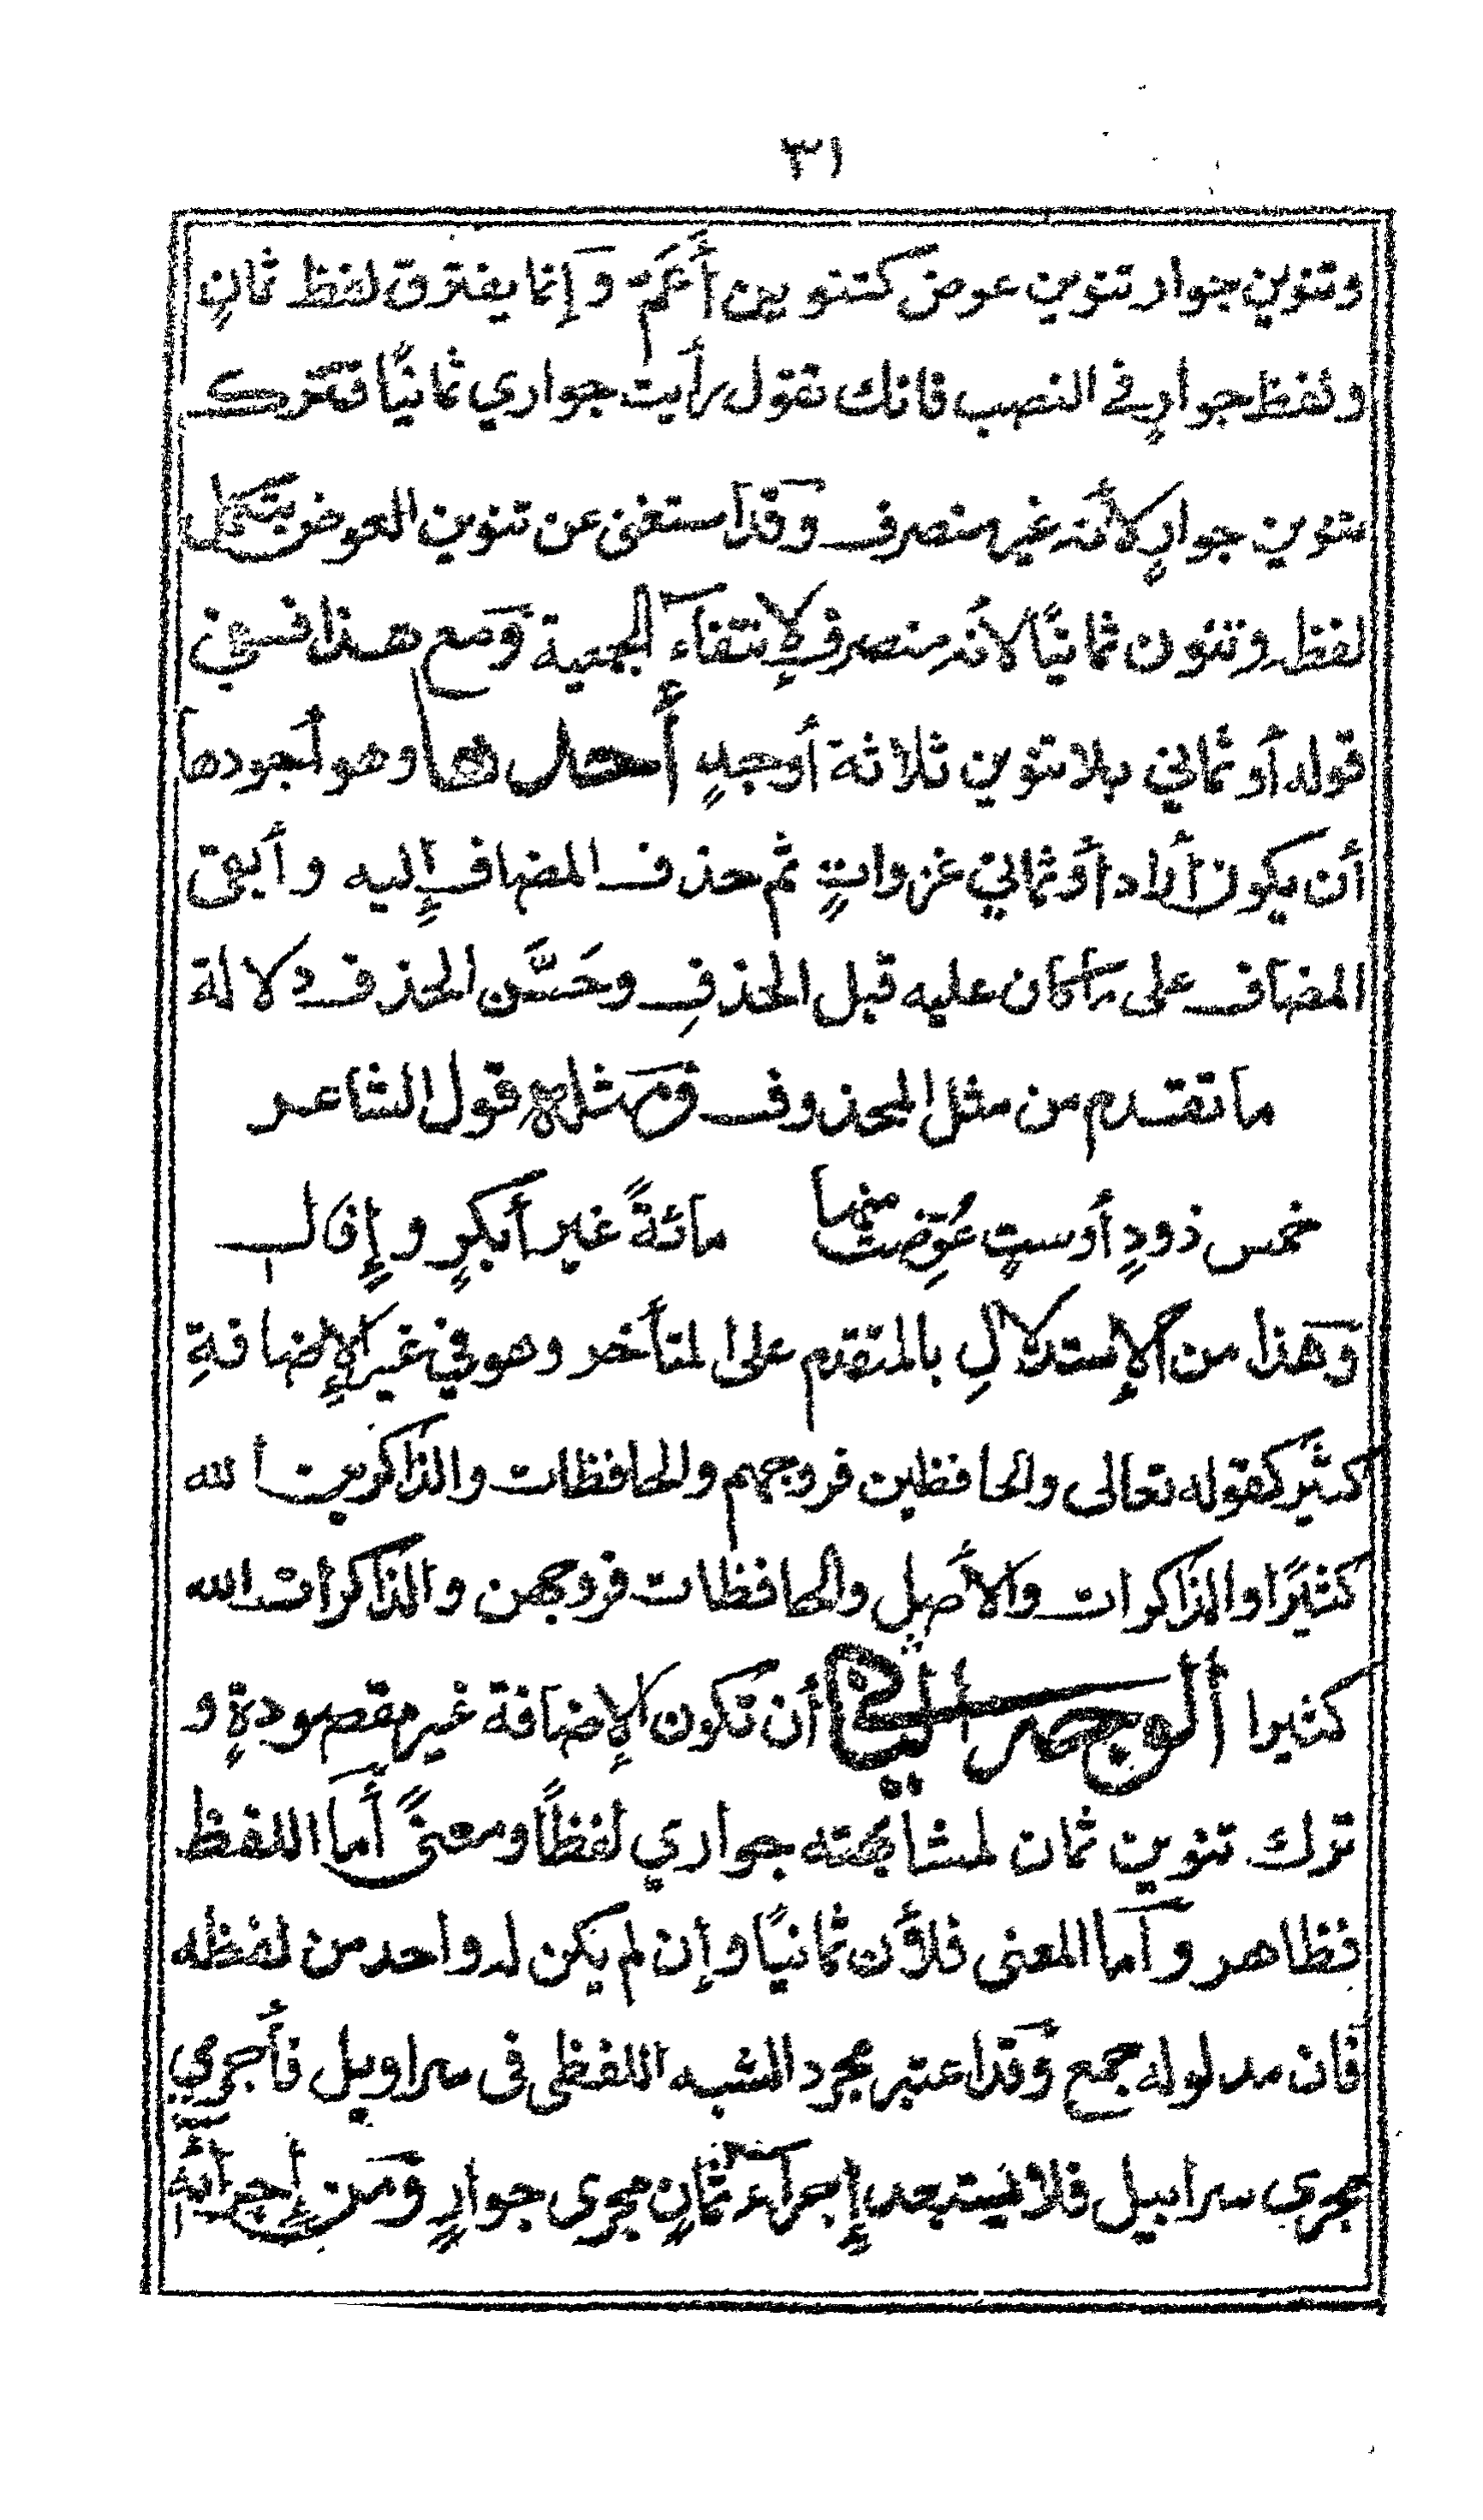 ٣١
وتنوين جوار تنوين عوض كتنوين أعم وإنما يفترق لفظ ثانٍ
ولفظ جوارٍ في النصب فانك تقول رأيت جواري ثمانيًا فتترك
تنوين جوارٍ لأنه غير منصرف وقد استغنى عن تنوين العوض بتكمل
لفظه وتنون ثمانيًا لانه منصرف لإنتفاء الجمعية ومع هذا ففي
قوله أو ثماني بلا تنوين ثلاثة أوجهٍ أحدها وهو أجودها
أن يكون أراد أو ثماني غزواتٍ ثم حذف المضاف إليه وأبقى
المضاف على ما كان عليه قبل الحذفِ وحَسَّن الحذف دلالة
ما تقدم من مثل المحذوف ومثله قول الشاعر
خمس ذودٍ أو ستٍ عُوِّضت منها مائةً غير أبكرٍ وإفالٍ
وهذا من الإستدلالِ بالمتقدم على المتأخر وهو في غير الإضافةِ
كثير كقوله تعالى والحافظين فروجهم والحافظات والذاكرين الله
كثيرًا والذاكرات والأصل والحافظات فروجهن والذاكرات الله
كثيرا الوجه الثاني أن تكون الإضافة غير مقصودةٍ و
ترك تنوين ثمان لمشابهته جواري لفظًا ومعنىً أما اللفظ
فظاهر وأما المعنى فلأن ثمانيًا وإن لم يكن له واحد من لفظه
فان مدلوله جمع وقد اعتبر مجرد الشبه اللفظي فى سراويل فأُجري
مجرى سرابيل فلا يستبعد إجراء ثمانٍ مجرى جوارٍ ومن إجرائه